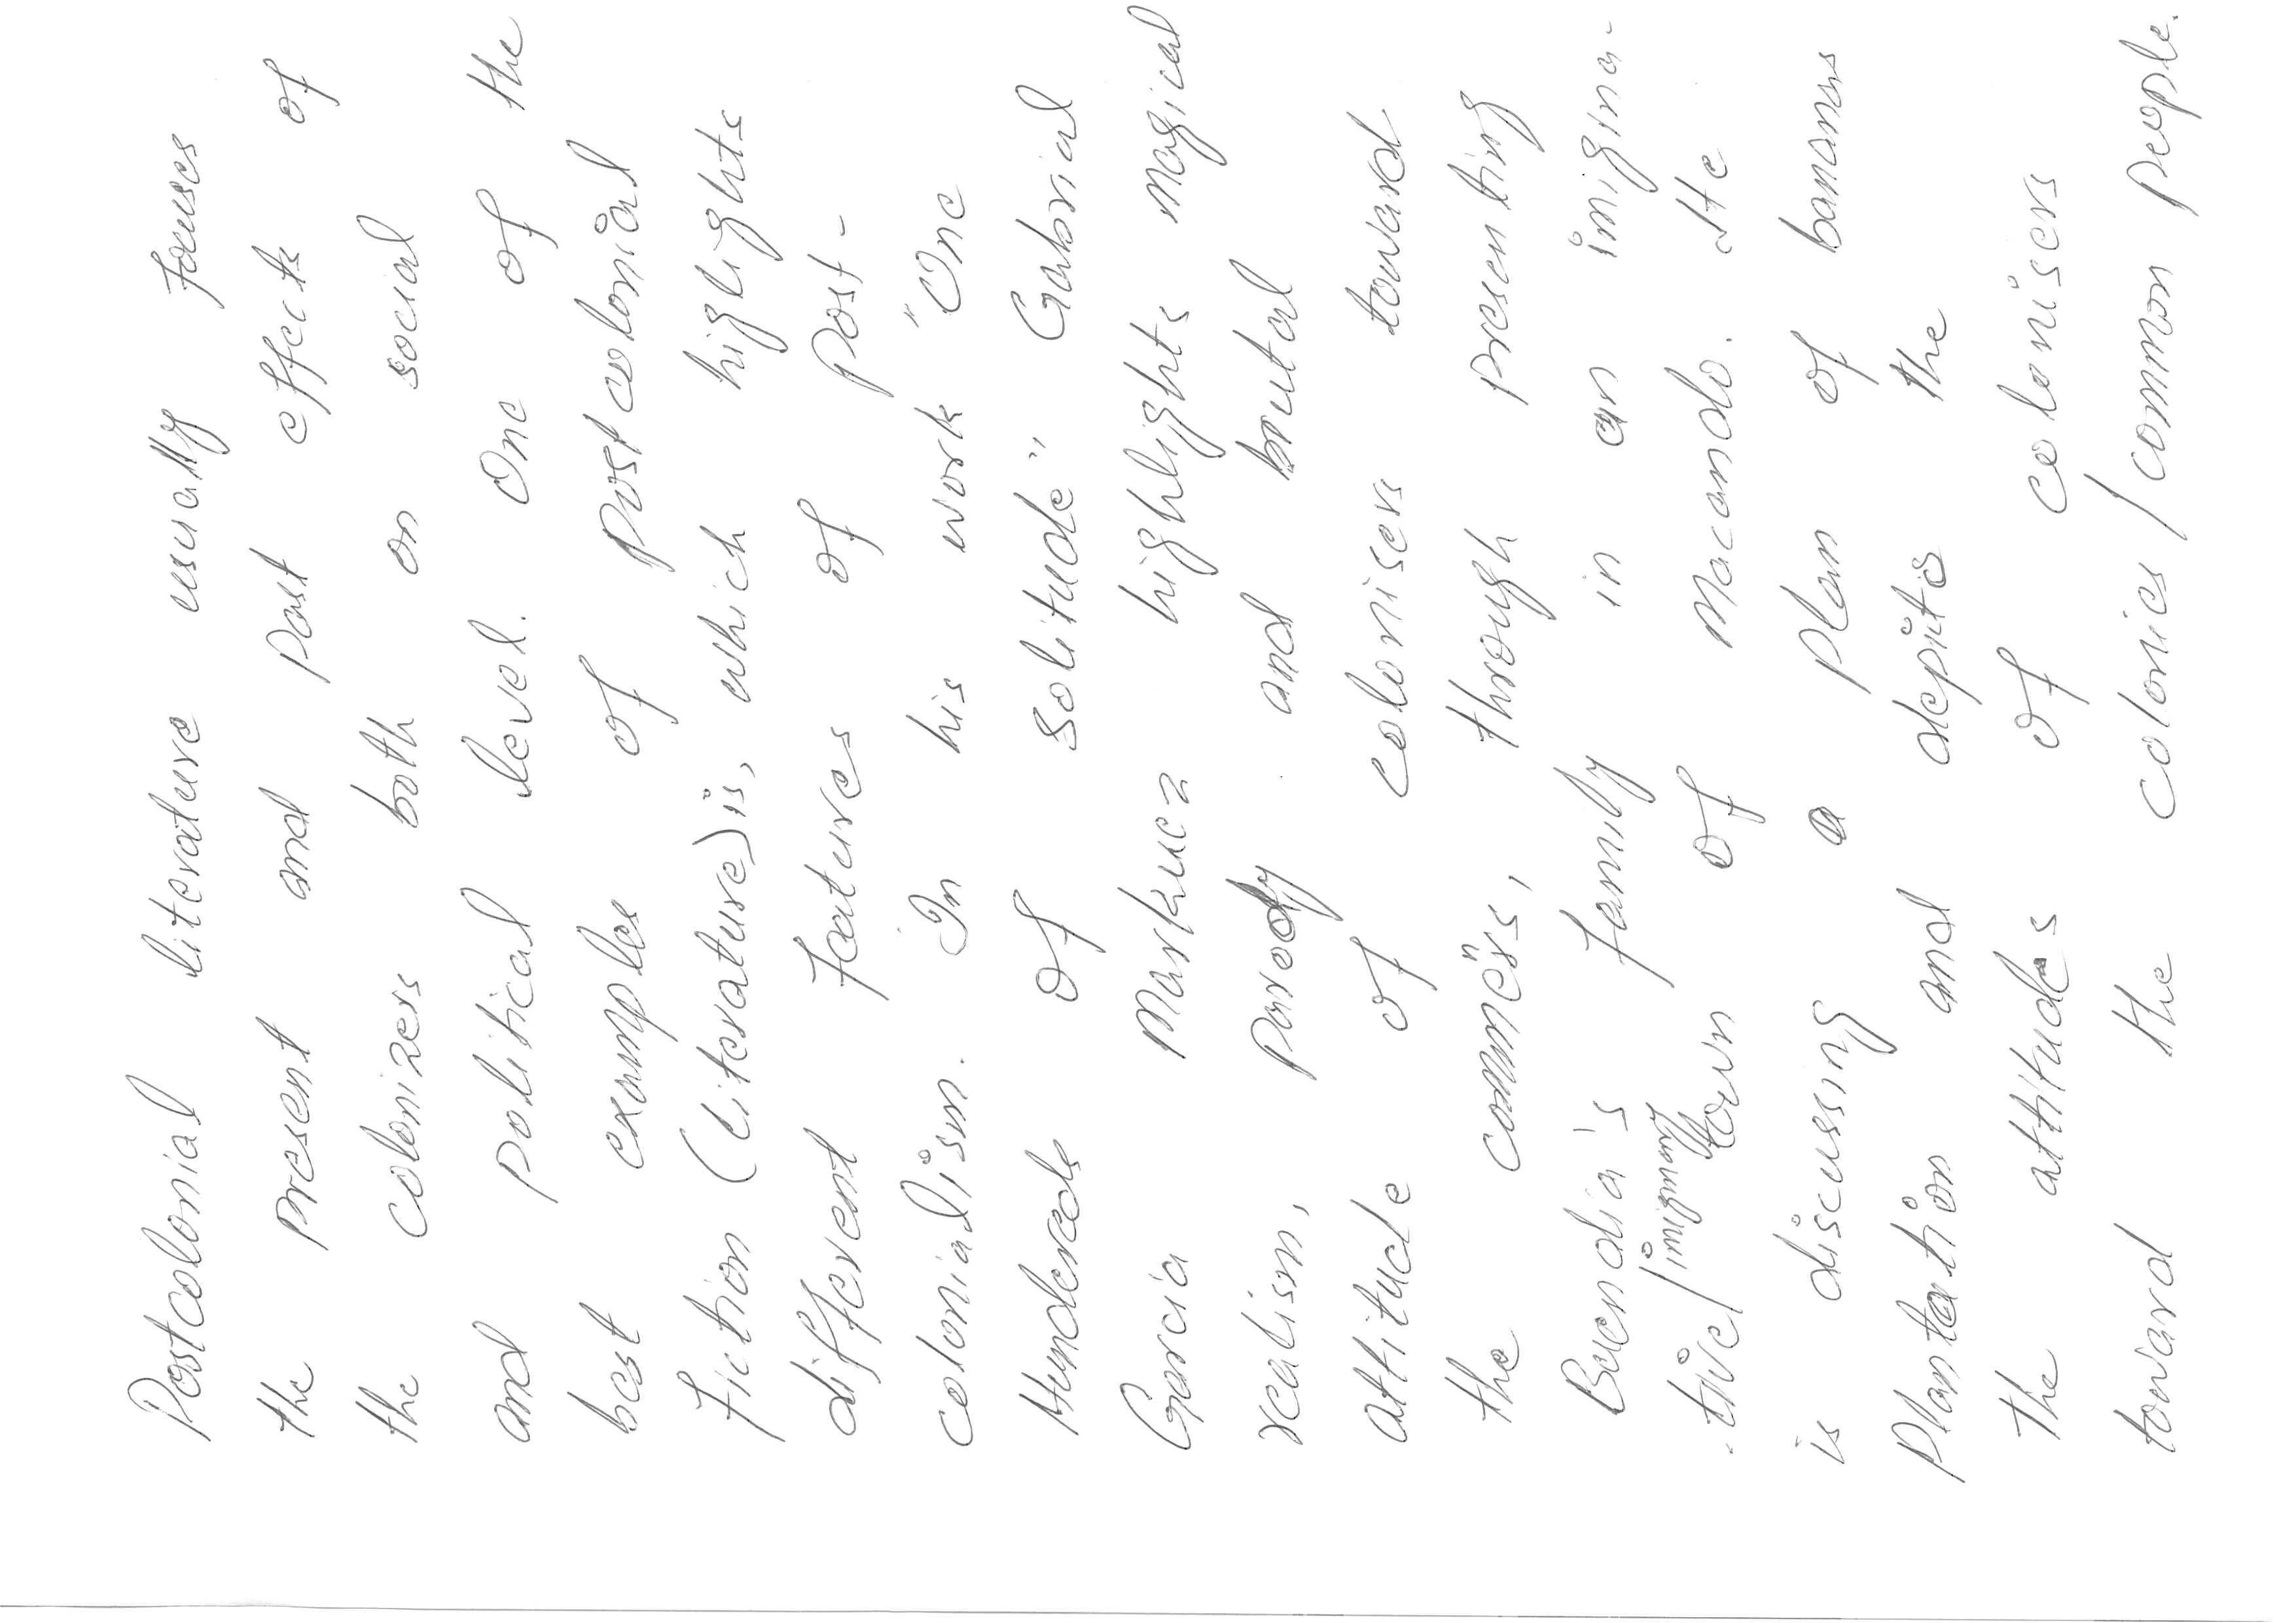 Postcolonial literature usually focuses
the present and past effects of
the colonizers both on social
and political level. One of the
best examples of postcolonial
fiction (literature) is, which higlights
different features of post-
colonialism. In his work "One
Hundereds of solitude" Gabrial
Garcia Markuez highlights magical
realism, parody and brutal
attitude of colonisers toward
the commners, through presenting
Buendia's family in an imigina-
tive/imiginary town of Macando. He
is discussing a plan of bananas
Plantation and depicts the
the attitudes of colonisers
toward the colonies/common people.